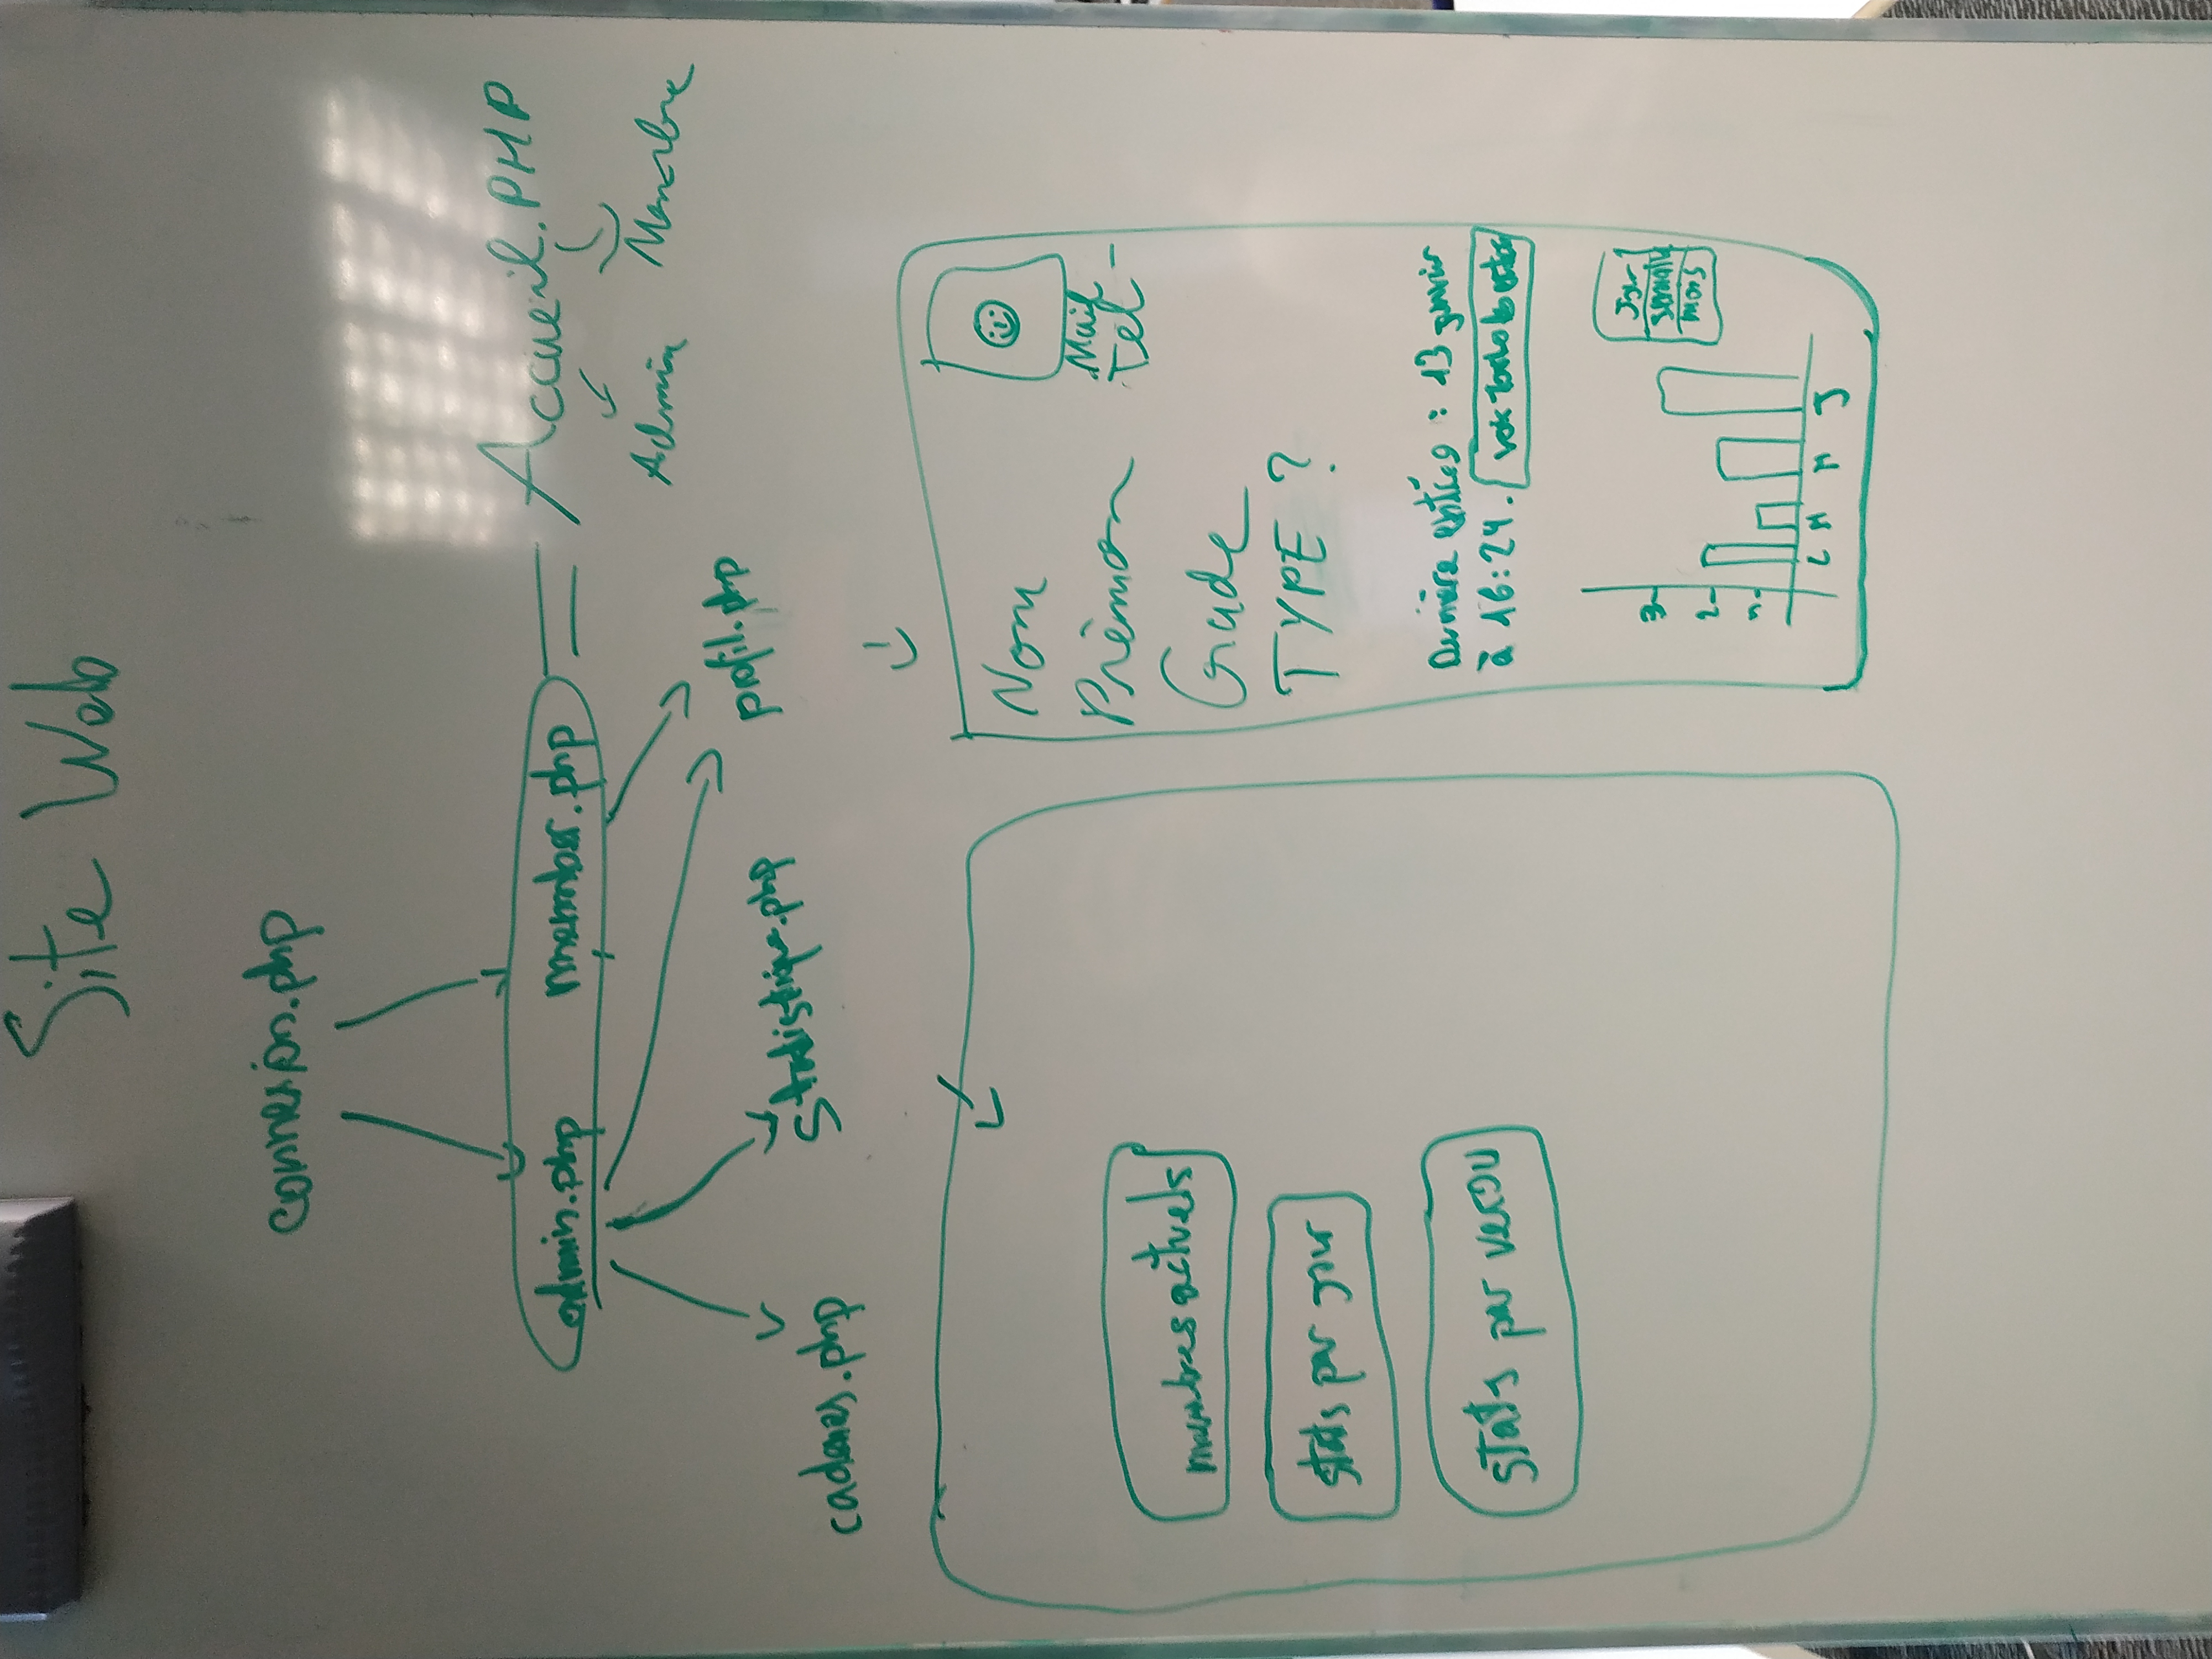 Site Web
connexion.php
admin.php member.php
Accueil.PHP
Admin Membre
cadenas.php
Statistique.php
profil.php
membres actuels
stats par jour
stats par verrou
Nom
Prénom
Mail
Tel
Grade
TYPE ?
Dernière entrée : 13 janvier
à 16:24.
Jour
semaine
mois
3
2
1
L M M J